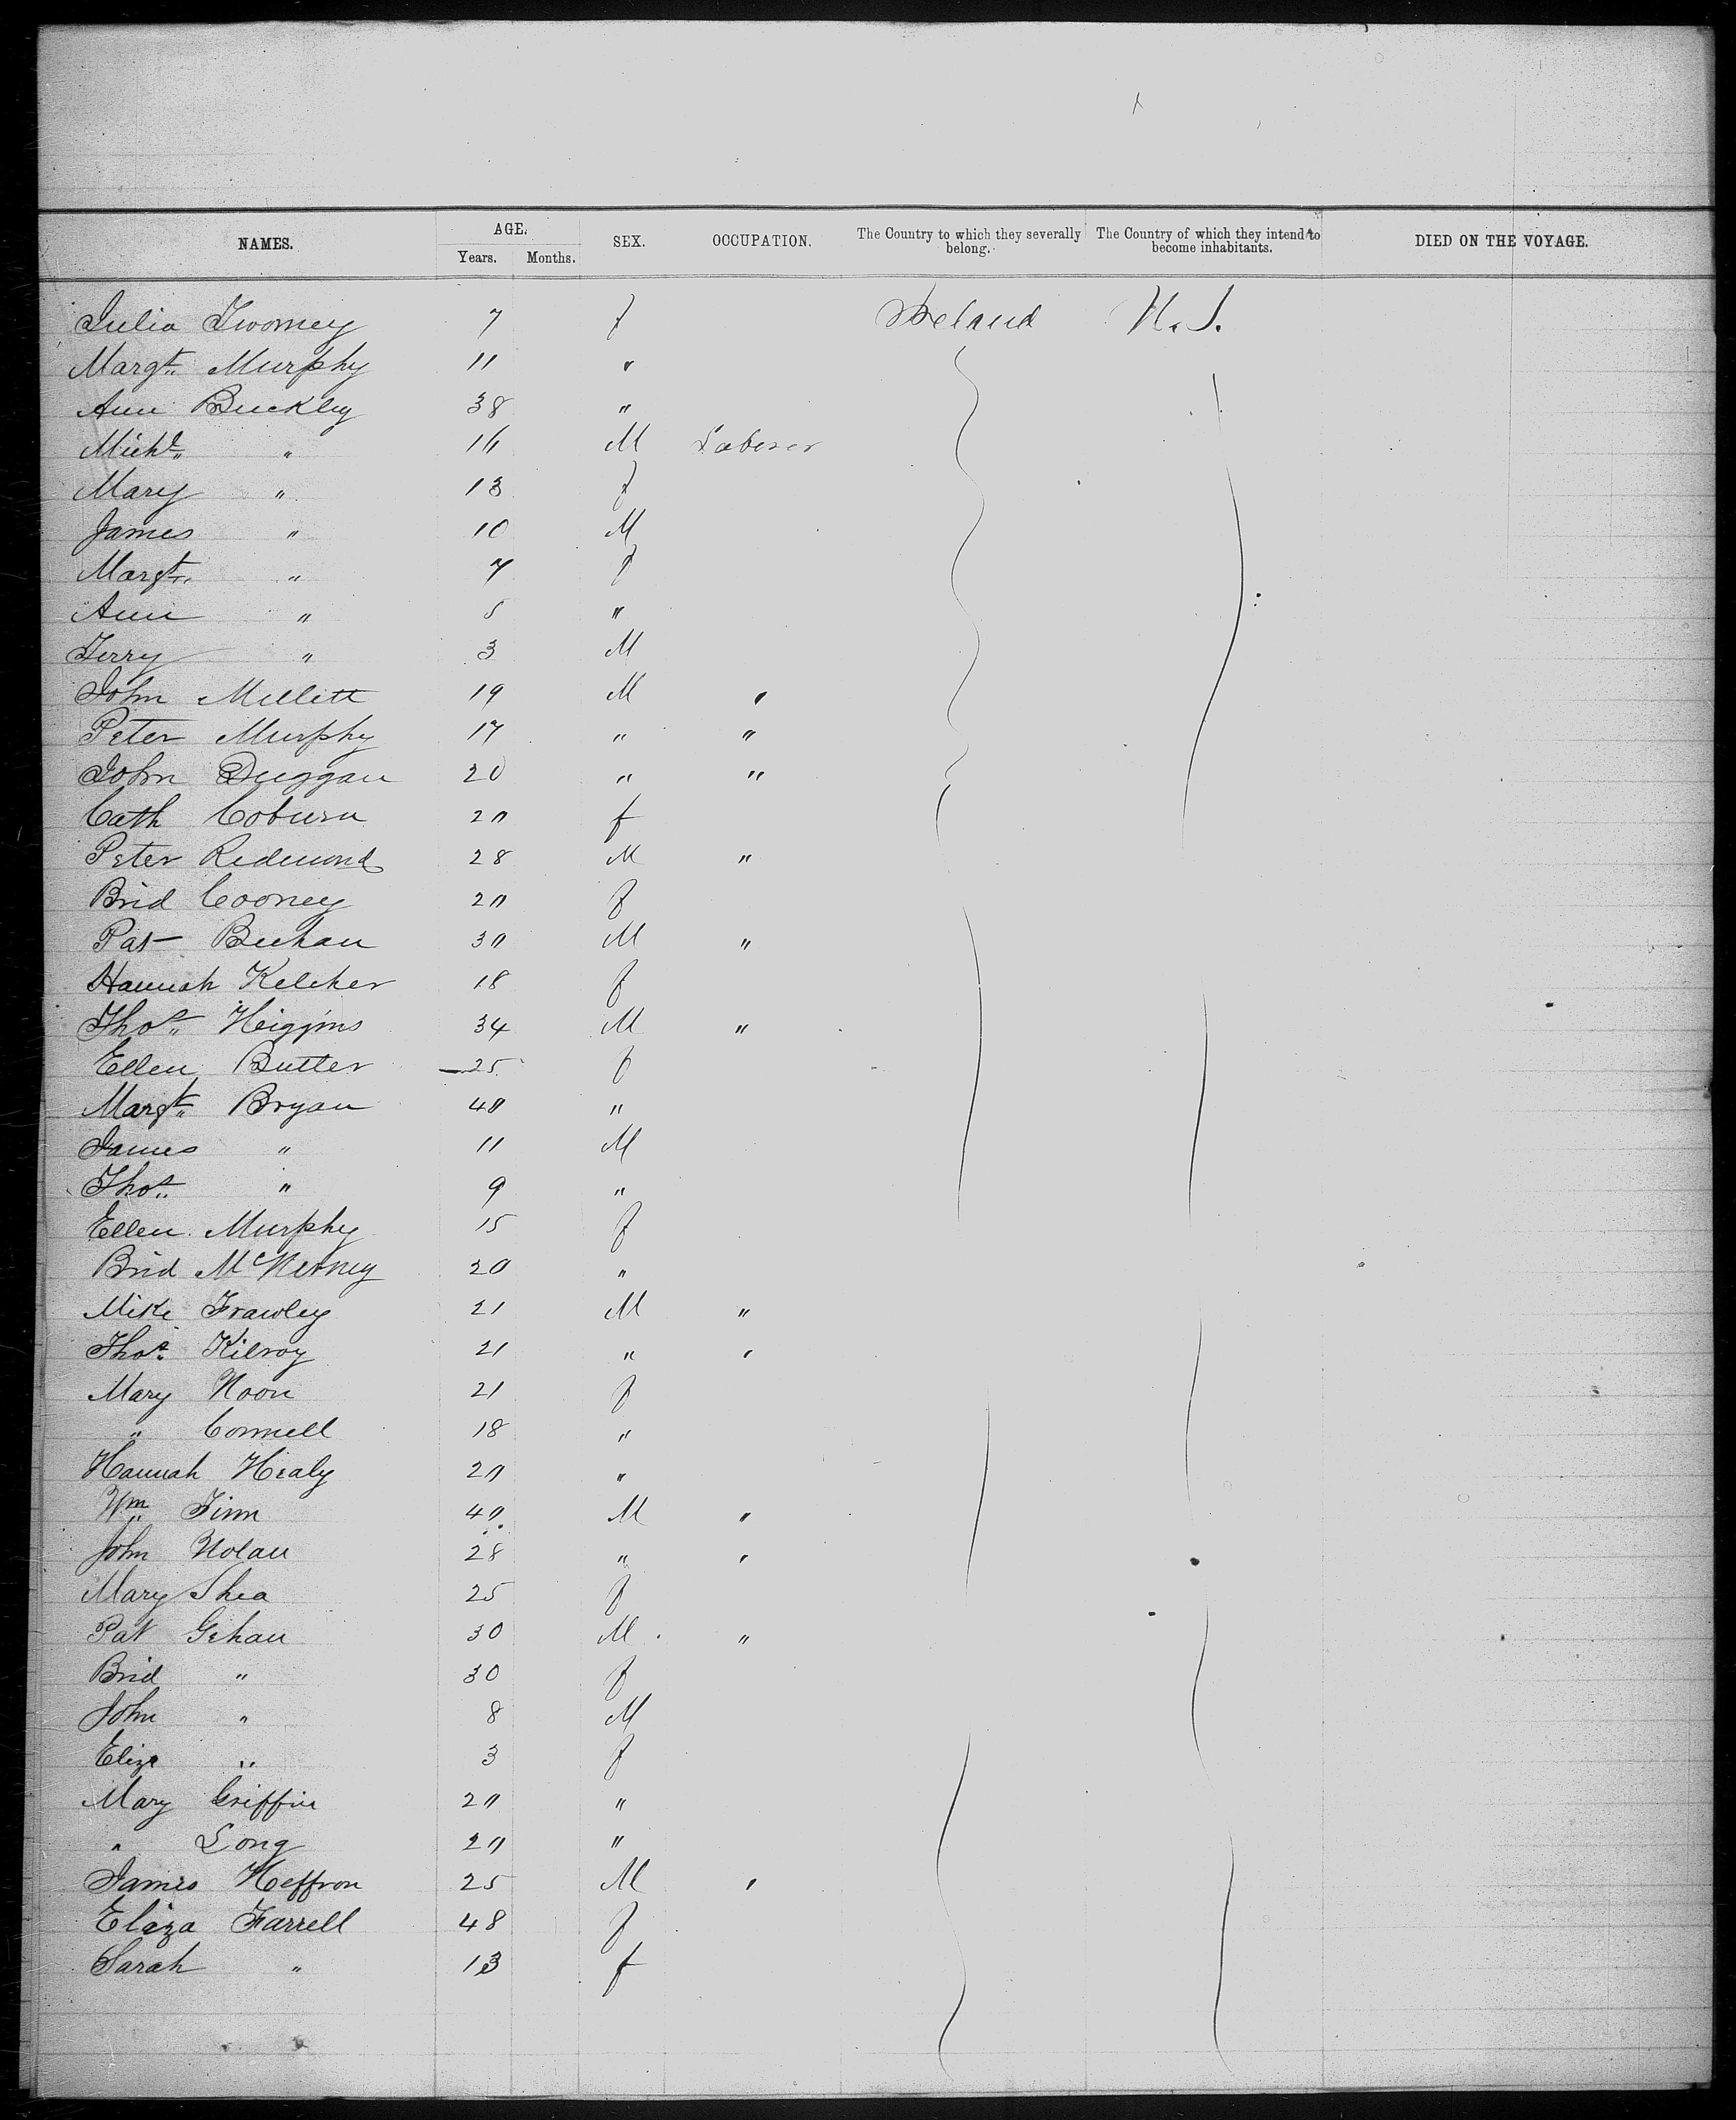 NAMES. AGE. Years. Months. SEX. OCCUPATION. The Country to which they severally belong. The Country of which they intend to become inhabitants. DIED ON THE VOYAGE.
Julia Twomey 7 f Ireland U.S.
Margt. Murphy 11 "
Ann Buckley 38 "
Michl. " 16 M Laborer
Mary " 13 f
James " 10 M
Margt. " 7 f
Ann " 5 "
Jerry " 3 M
John Millett 19 M "
Peter Murphy 17 " "
John Duggan 20 " "
Cath Coburn 20 f
Peter Redmond 28 M "
Brid Cooney 20 f
Pat Beehan 30 M "
Hannah Kelcher 18 f
Thos. Higgins 34 M "
Ellen Butler 25 f
Margt. Bryan 40 "
James " 11 M
Thos. " 9 "
Ellen Murphy 15 f
Brid McNerney 20 "
Mike Frawley 21 M "
Thos. Kilroy 21 " "
Mary Noon 21 f
" Connell 18 "
Hannah Healy 20 "
Wm Finn 40 M "
John Nolan 28 " "
Mary Shea 25 f
Pat Gehan 30 M "
Brid " 30 f
John " 8 M
Eliza " 3 f
Mary Griffin 20 "
" Long 20 "
James Heffron 25 M "
Eliza Farrell 48 f
Sarah " 13 f